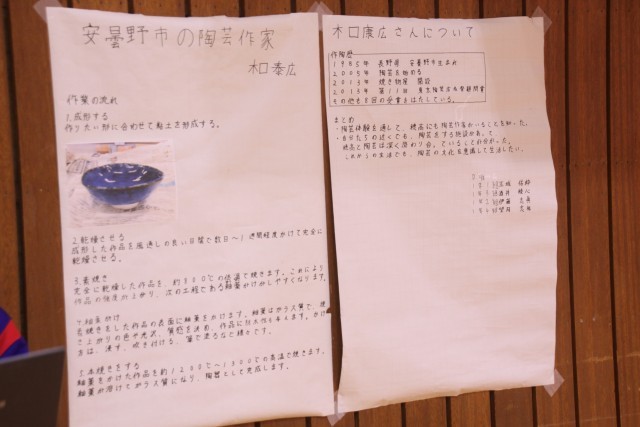 安曇野市の陶芸作家
木口泰広
作業の流れ
1.成形する
作りたい形に合わせて粘土を形成する。
2.乾燥させる
成形した作品を風通しの良い日陰で数日〜1週間程度かけて完全に
乾燥させる。
3.素焼き
完全に乾燥した作品を、約800℃の低温で焼きます。これにより
作品の強度が上がり、次の工程である釉薬がけがしやすくなります。
素焼きをした作品の表面に釉薬をかけます。釉薬はガラス質で、焼
き上がりの色や光沢、質感を決め、作品に
方は、浸す、吹き付ける、筆で塗るなど様々です。
5.本焼きをする
釉薬をかけた作品を約1200℃〜1300℃の高温で焼きます。
釉薬が溶けてガラス質になり、陶器として完成します。
木口康広さんについて
作陶歴
1985年 長野県 安曇野市生まれ
2005年 陶芸を始める
2013年 焼き物屋 開設
2013年 第11回
その他も5回の受賞をはたしている。
まとめ
・陶芸体験を通して、穂高にも陶芸作家がいることを知った。
・自分たちの近くでも、陶芸をする施設があって、
穂高と陶芸は深く関わり合っていることが分かった。
これからの生活でも、陶芸の文化を意識して生活したい。